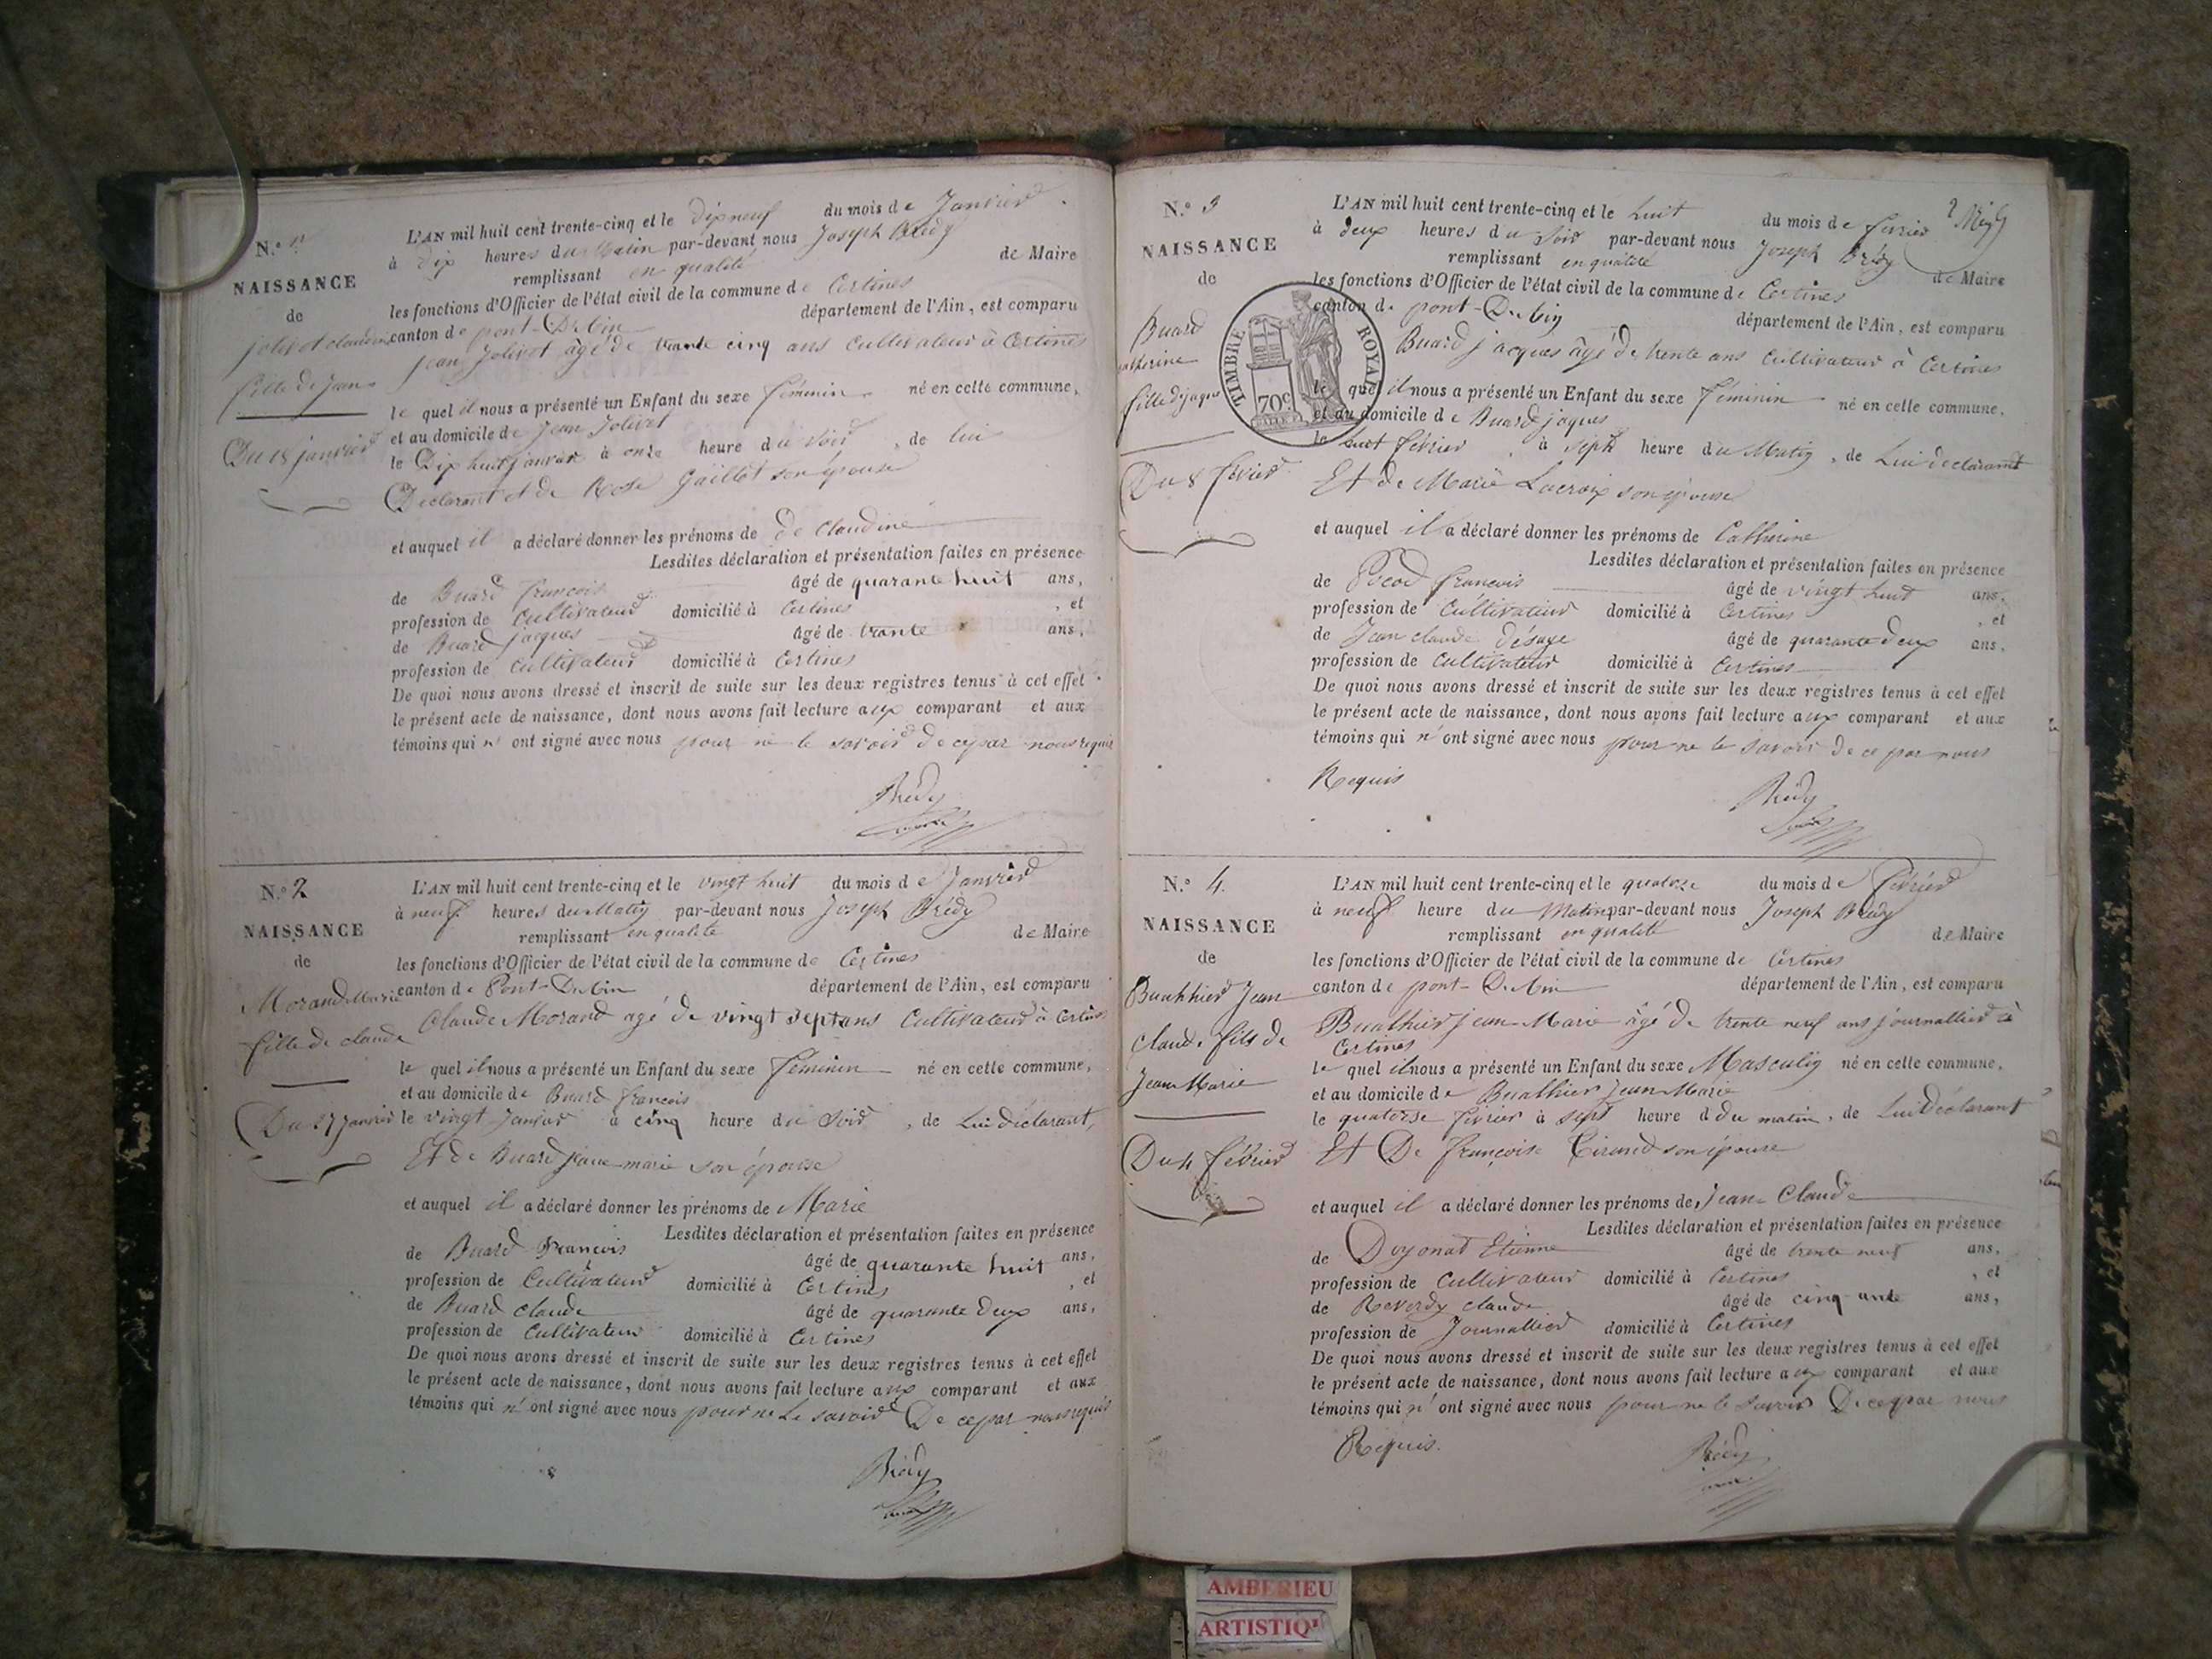 N.o 1er
NAISSANCE
de
jolivet claudine
fille de Jean
Du 18 janvier
L'AN mil huit cent trente-cinq et le dix neuf du mois de Janvier
à dix heures du Matin par-devant nous Joseph Brédy
remplissant en qualité de Maire
les fonctions d'Officier de l'état civil de la commune de Certines
canton de pont-Dubin département de l'Ain, est comparu
jean Jolivet âgé de trante cinq ans Cultivateur à Certines
le quel il nous a présenté un Enfant du sexe féminin né en cette commune,
et au domicile de Jean Jolivet
le Dix huit janvier à onze heure du Soir, de lui
Déclarant et de Rose Gaillot son épouse
et auquel il a déclaré donner les prénoms de de Claudine
Lesdites déclaration et présentation faites en présence
de Buard françois âgé de quarante huit ans,
profession de Cultivateur domicilié à Certines, et
de Buard jacques âgé de trante ans,
profession de Cultivateur domicilié à Certines
De quoi nous avons dressé et inscrit de suite sur les deux registres tenus à cet effet
le présent acte de naissance, dont nous avons fait lecture aux comparant et aux
témoins qui n'ont signé avec nous pour ne le savoir de ce par nous requis
Brédy
N.o 2
NAISSANCE
de
Morand Marie
fille de claude
Du 27 Janvier
L'AN mil huit cent trente-cinq et le vingt huit du mois de Janvier
à neuf heures du Matin par-devant nous Joseph Brédy
remplissant en qualité de Maire
les fonctions d'Officier de l'état civil de la commune de Certines
canton de Pont-Dubin département de l'Ain, est comparu
Claude Morand agé de vingt sept ans Cultivateur à Certines
le quel il nous a présenté un Enfant du sexe féminin né en cette commune,
et au domicile de Buard françois
le vingt Janvier à cinq heure du Soir, de Lui Déclarant,
Et de Buard jeane marie son épouse
et auquel il a déclaré donner les prénoms de Marie
Lesdites déclaration et présentation faites en présence
de Buard François âgé de quarante huit ans,
profession de Cultivateur domicilié à Certines, et
de Buard claude âgé de quarante Deux ans,
profession de Cultivateur domicilié à Certines
De quoi nous avons dressé et inscrit de suite sur les deux registres tenus à cet effet
le présent acte de naissance, dont nous avons fait lecture aux comparant et aux
témoins qui n'ont signé avec nous pour ne Le savoir De ce par nous requis
Brédy
N.o 3
NAISSANCE
de
Buard
catherine
fille de jaques
Du 8 février
TIMBRE ROYAL
70c
L'AN mil huit cent trente-cinq et le huit du mois de février
à deux heures du Soir par-devant nous Joseph Brédy
remplissant en qualité de Maire
les fonctions d'Officier de l'état civil de la commune de Certines
canton de pont-Dubin département de l'Ain, est comparu
Buard jacques âgé de trente ans Cultivateur à Certines
le quel il nous a présenté un Enfant du sexe féminin né en cette commune,
et au domicile de Buard jaques
le huit février, à sept heure du Matin, de Lui declarant
Et de Marie Lacroix son épouse
et auquel il a déclaré donner les prénoms de Catherine
Lesdites déclaration et présentation faites en présence
de françois âgé de vingt huit ans,
profession de Cultivateur domicilié à Certines, et
de Jean claude Désuge âgé de quarante deux ans,
profession de Cultivateur domicilié à Certines
De quoi nous avons dressé et inscrit de suite sur les deux registres tenus à cet effet
le présent acte de naissance, dont nous avons fait lecture aux comparant et aux
témoins qui n'ont signé avec nous pour ne le savoir de ce par nous
Requis
Brédy
N.o 4.
NAISSANCE
de
Buathier Jean
claude fils de
Jean Marie
Du 14 février
L'AN mil huit cent trente-cinq et le quatorze du mois de février
à neuf heure du Matin par-devant nous Joseph Brédy
remplissant en qualité de Maire
les fonctions d'Officier de l'état civil de la commune de Certines
canton de pont-Dubin département de l'Ain, est comparu
Buathier jean Marie âgé de trente neuf ans journallier à
Certines
le quel il nous a présenté un Enfant du sexe Masculin né en cette commune,
et au domicile de Buathier jean Marie
le quatorse février à sept heure d du matin, de Lui Déclarant
Et De françoise son épouse
et auquel il a déclaré donner les prénoms de Jean Claude
Lesdites déclaration et présentation faites en présence
de Doyonat Etienne âgé de trente neuf ans,
profession de Cultivateur domicilié à Certines, et
de Reverdy claude âgé de cinq ante ans,
profession de Journallier domicilié à Certines
De quoi nous avons dressé et inscrit de suite sur les deux registres tenus à cet effet
le présent acte de naissance, dont nous avons fait lecture aux comparant et aux
témoins qui n'ont signé avec nous pour ne le savoir De ce par nous
Requis.
Brédy
AMBERIEU
ARTISTIQ